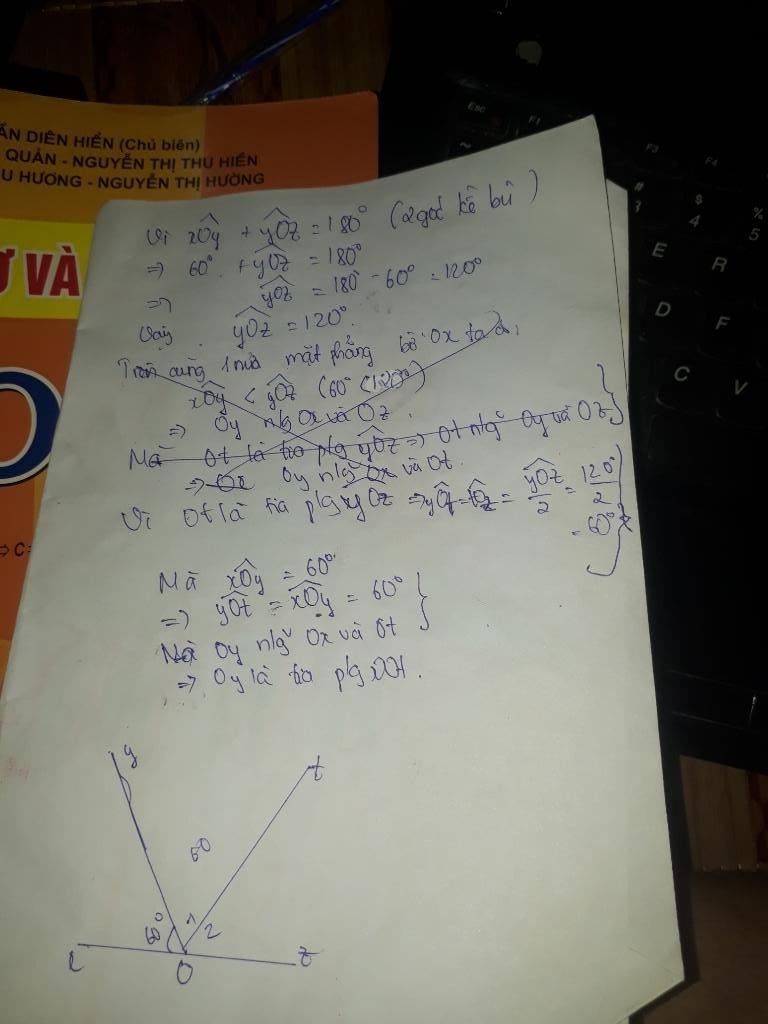 ẦN DIÊN HIỂN (Chủ biên)
QUÁN - NGUYỄN THỊ THU HIỀN
U HƯƠNG - NGUYỄN THỊ HƯỜNG
Ơ VÀ
O
⇒ C =
Esc
F1
F3
F4
~
#
3
$
4
%
5
E
R
D
F
C
V
Vì xOy + yOz = 180° (2 góc kề bù)
⇒ 60° + yOz = 180°
⇒ yOz = 180° - 60° = 120°
Vậy yOz = 120°.
Trên cùng 1 nửa mặt phẳng bờ Ox ta có,
xOy < yOz (60° < 120°)
⇒ Oy nlg Ox và Oz.
Mà Ot là tia plg yOz ⇒ Ot nlg Oy và Oz
⇒ Ox Oy nlg Ox và Ot.
Vì Ot là tia plg yOz ⇒ yOt = tOz = yOz/2 = 120°/2
= 60°
Mà xOy = 60°
⇒ yOt = xOy = 60°
Mà Oy nlg Ox và Ot
⇒ Oy là tia plg xOt.
y
t
60
60°
1
2
O
z